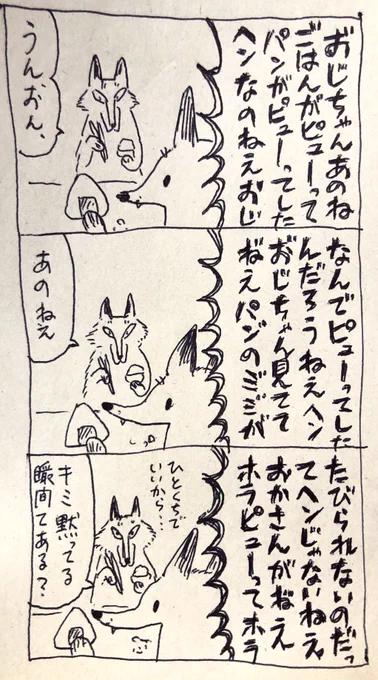 おじちゃんあのね
ごはんがピューって
パンがピューってした
ヘンなのねえおじ
うんおん、
なんでピューってした
んだろうねえヘン
おじちゃん見てて
ねえパンのミミが
あのねえ
たびられないのだっ
てヘンじゃないねえ
おかさんがねえ
ホラピューってホラ
ひとくちで
いいから…
キミ黙ってる
瞬間てある？